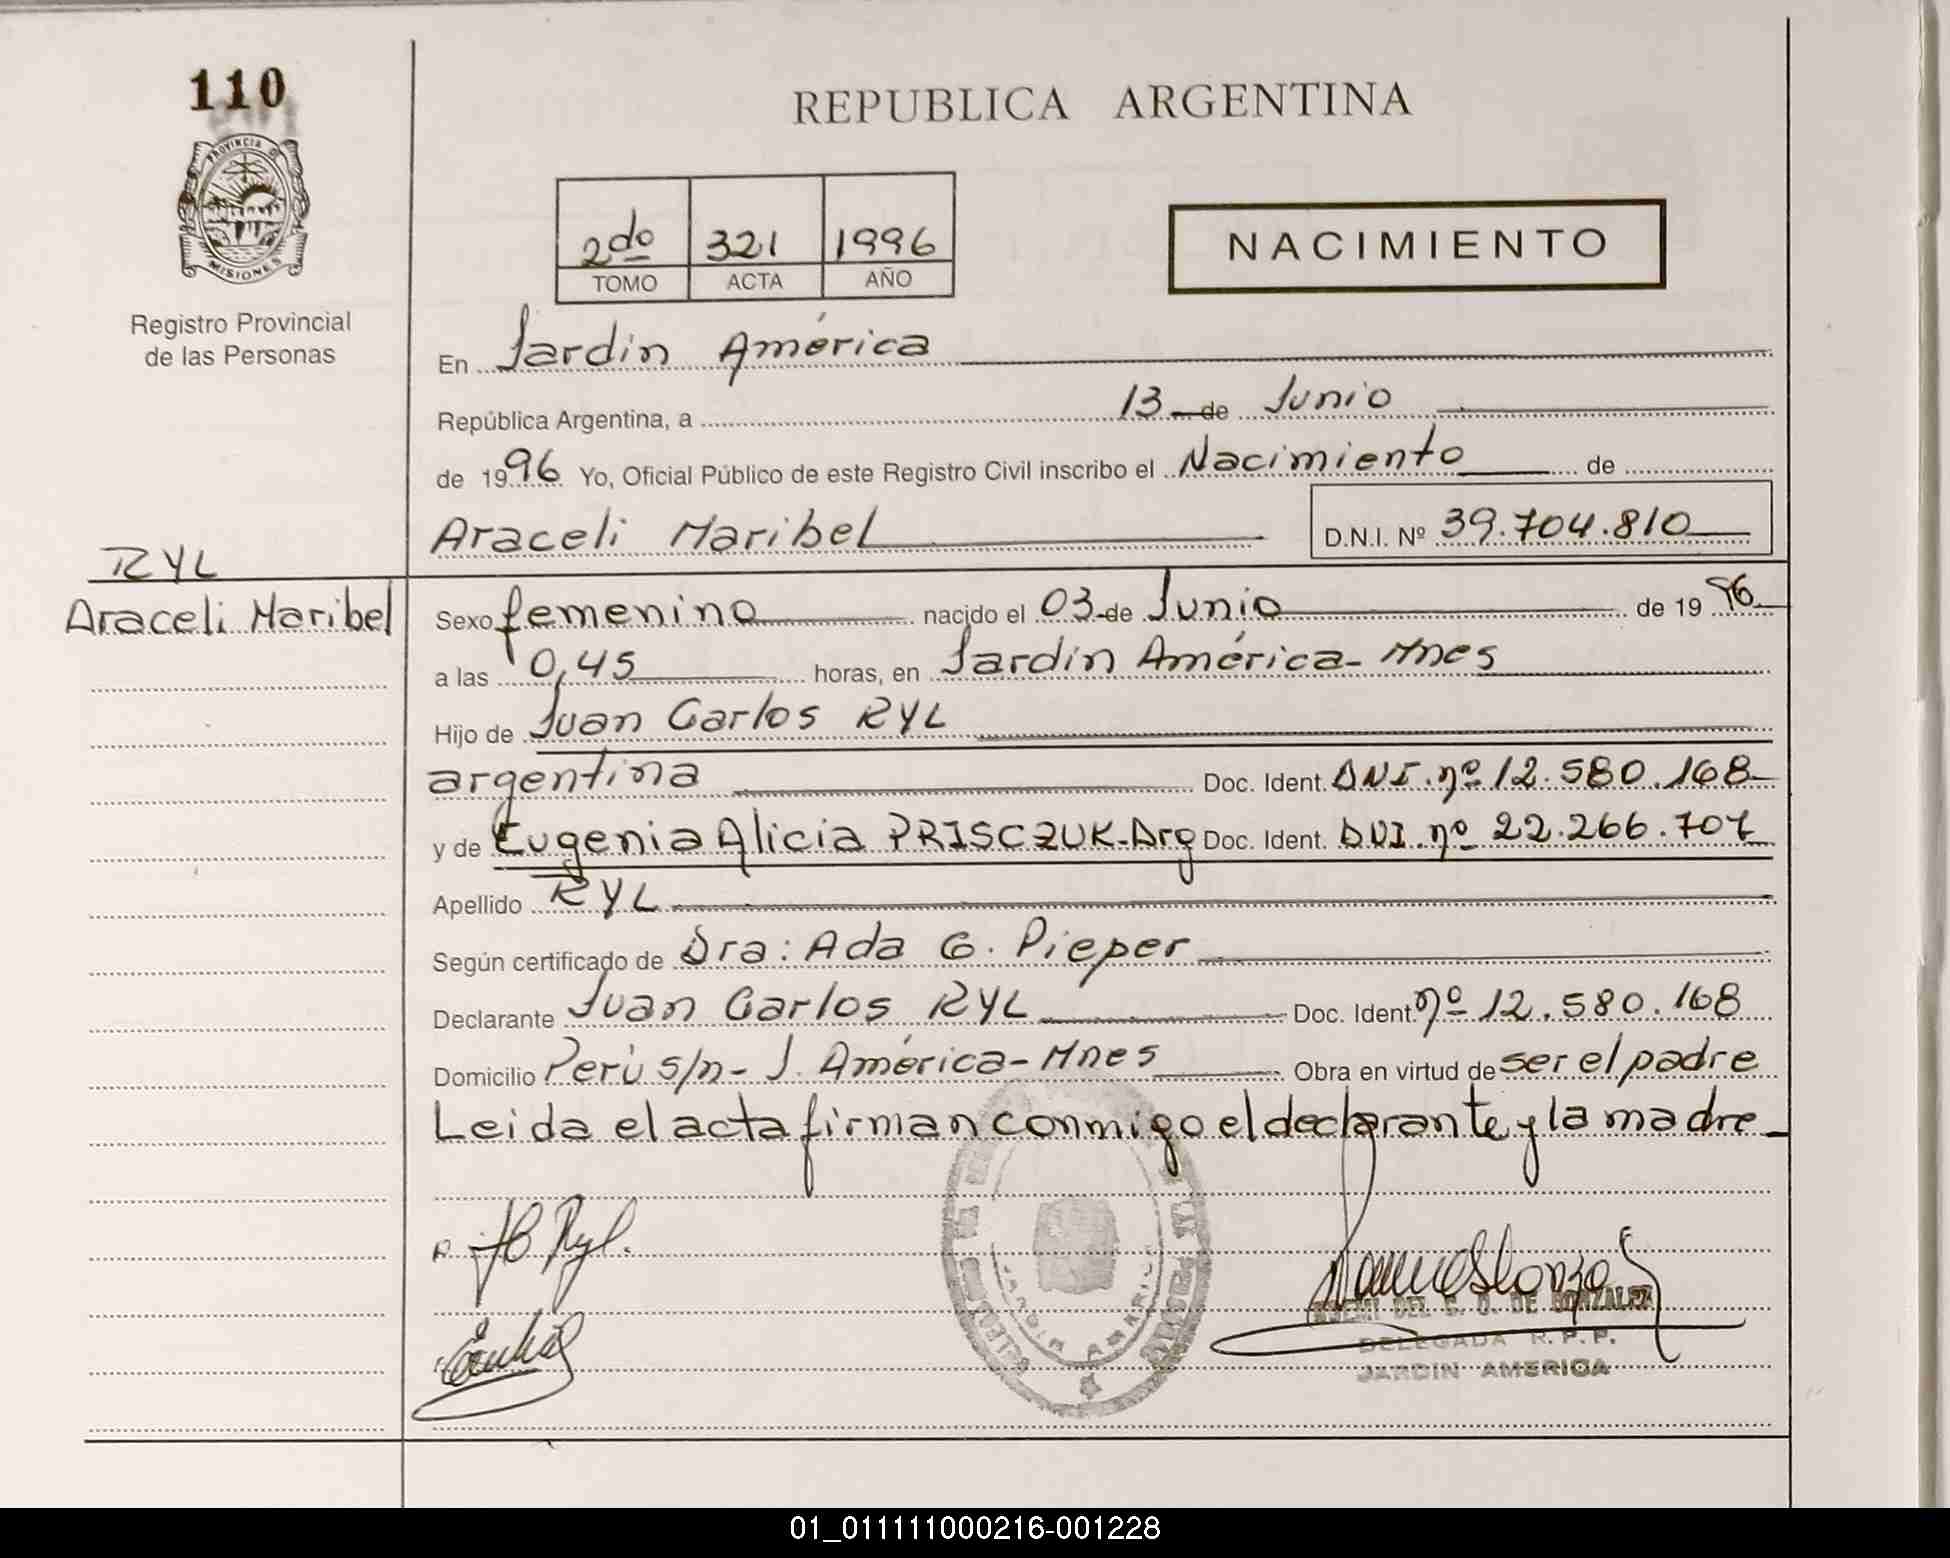 110
PROVINCIA DE
MISIONES
Registro Provincial
de las Personas
REPUBLICA ARGENTINA
2do 321 1996
TOMO ACTA AÑO
NACIMIENTO
En Jardín América
República Argentina, a 13 de Junio
de 1996 Yo, Oficial Público de este Registro Civil inscribo el Nacimiento de
Araceli Maribel D.N.I. Nº 39.704.810
RYL
Araceli Maribel
Sexo femenino nacido el 03 de Junio de 1996
a las 0,45 horas, en Jardín América - Mnes
Hijo de Juan Carlos RYL
argentina Doc. Ident. DNI. nº 12.580.168
y de Eugenia Alicia PRISCZUK - Arg Doc. Ident. DNI. nº 22.266.707
Apellido RYL
Según certificado de Dra: Ada G. Pieper
Declarante Juan Carlos RYL Doc. Ident. nº 12.580.168
Domicilio Perú s/n - J. América - Mnes Obra en virtud de ser el padre
Leida el acta firman conmigo el declarante y la madre
JC Ryl.
JARDIN AMERICA
DEL C. O. DE GONZALEZ
DELEGADA R. P. P.
JARDIN AMERICA
01_011111000216-001228